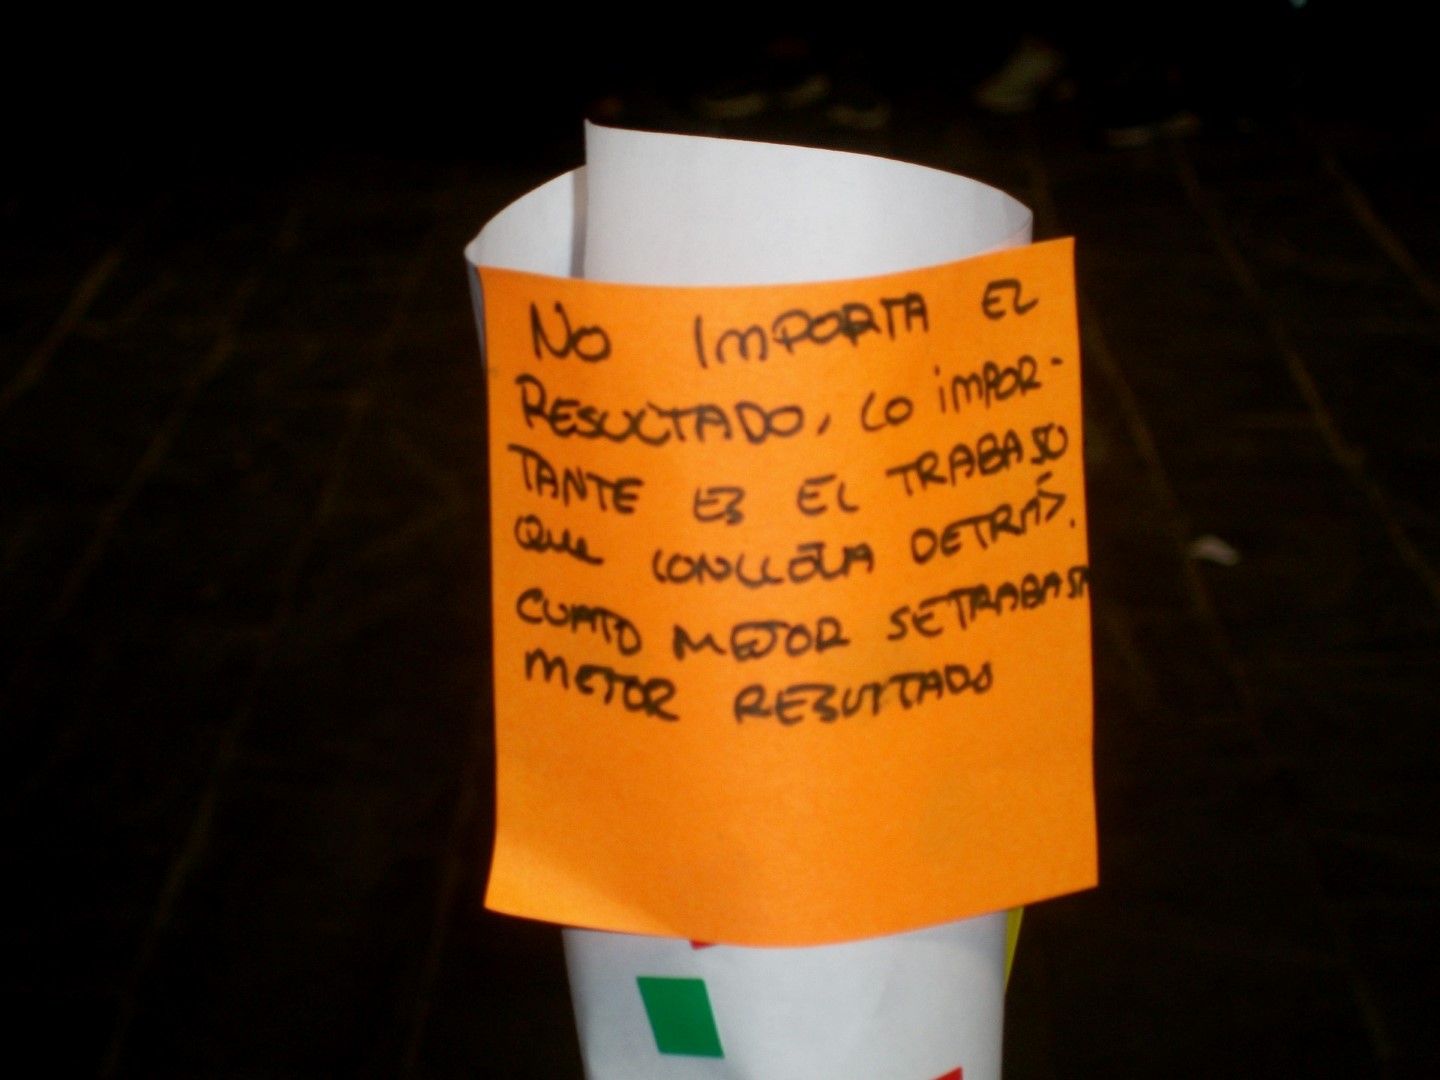 No IMPORTA EL
RESULTADO, LO IMPOR-
TANTE ES EL TRABAJO
QUE CONLLEVA DETRÁS.
CUATO MEJOR SE TRABAJA
MEJOR RESULTADO